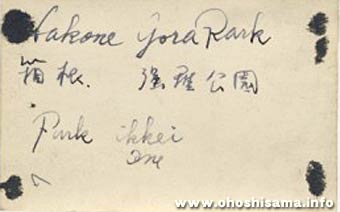 Hakone Gora Park
箱根. 強羅公園
Park ikkei
one
www.ohoshisama.info